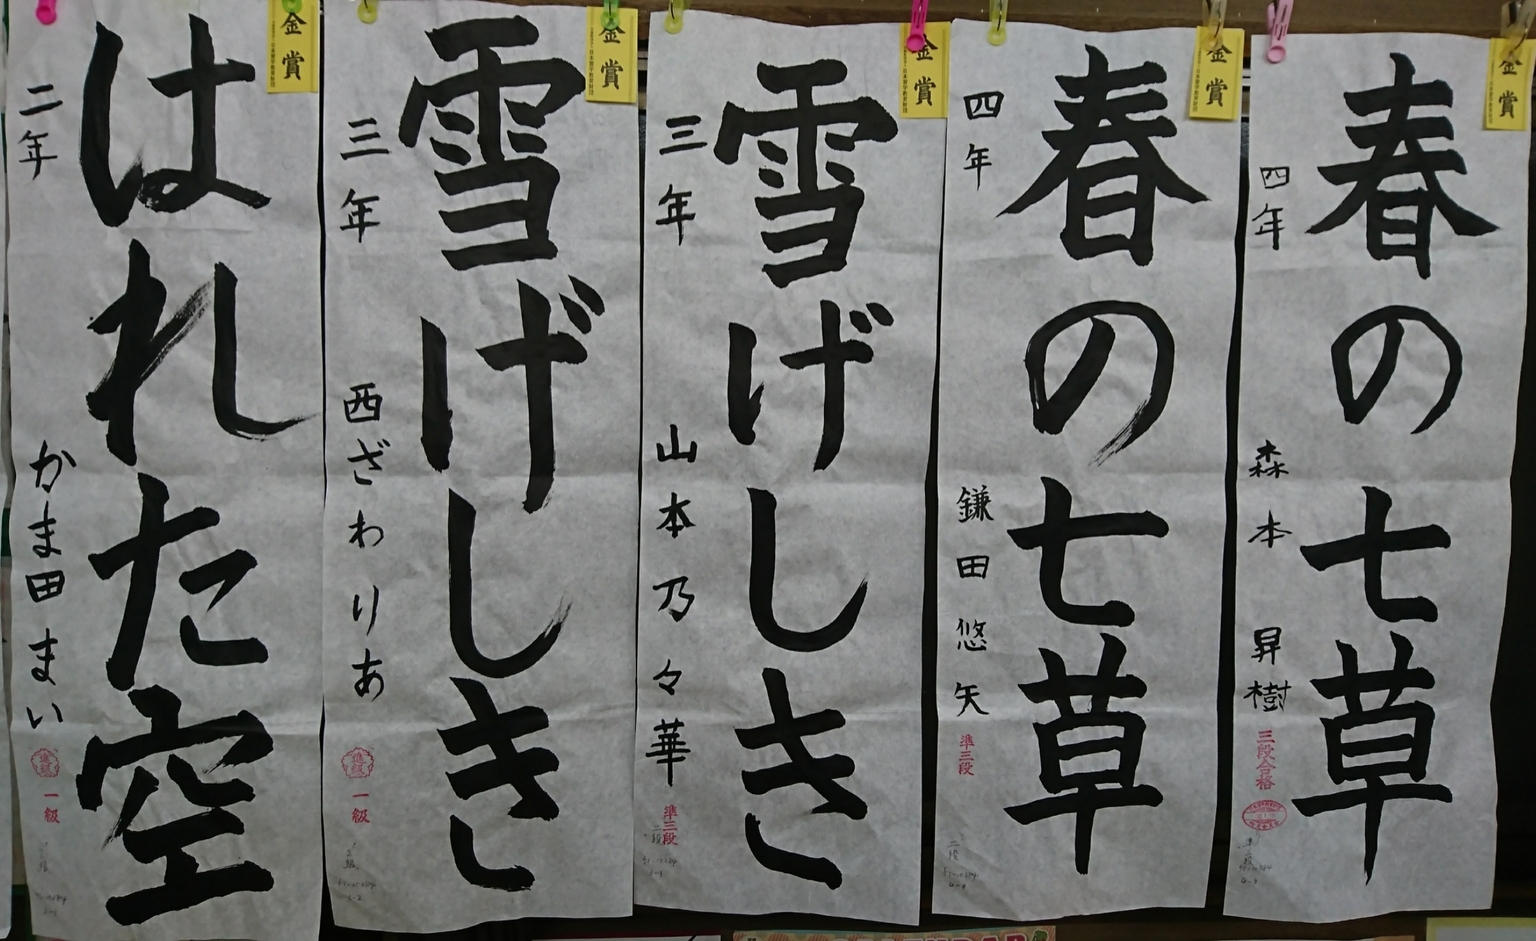 金賞
春の七草
四年
森本昇樹
三段合格
金賞
春の七草
四年
鎌田悠矢
準三段
金賞
雪げしき
三年
山本乃々華
準三段
二段
金賞
雪げしき
三年
西ざわりあ
進級
一級
金賞
はれた空
二年
かま田まい
進級
一級